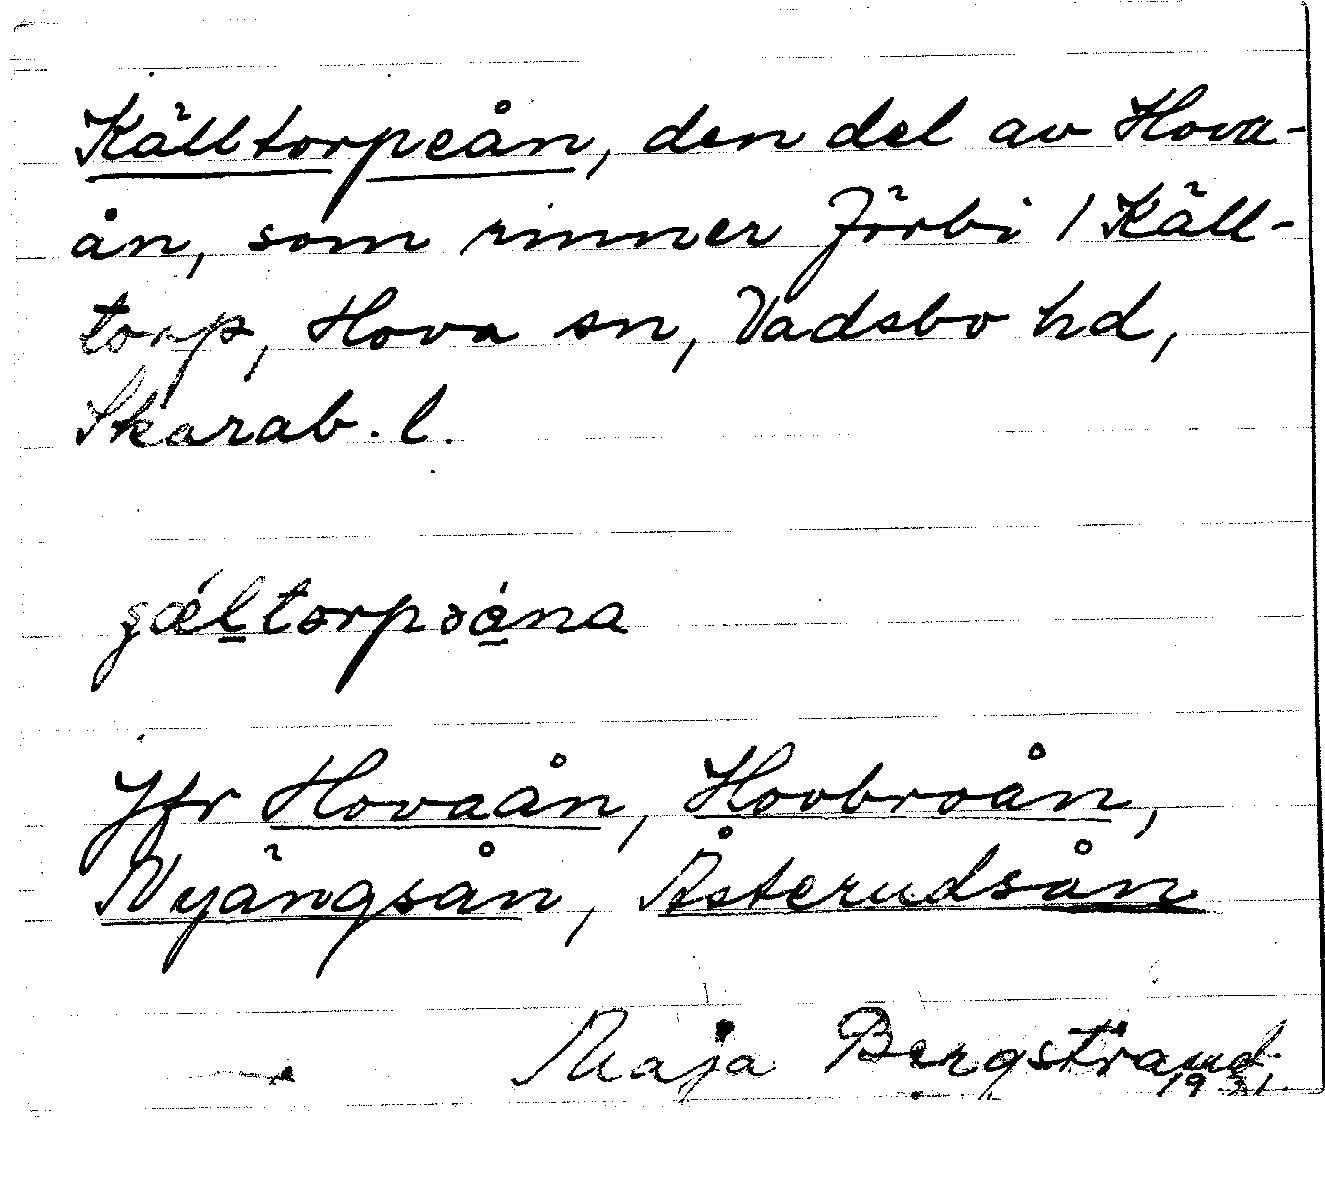 Källtorpeån, den del av Hova-
ån, som rinner förbi / Käll-
torp, Hova sn, Vadsbo hd,
Skarab. l.
Jfr Hovaån, Hovbroån,
Nyängsån, Åsterudsån
Maja Bergstrand,
1931.